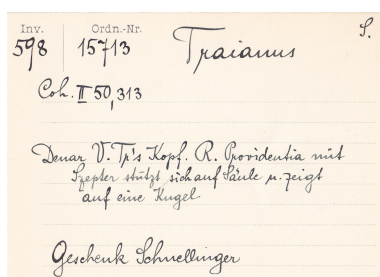 Inv. Ordn.-Nr. S.
598 15713 Traianus
Coh. II 50,313
Denar V. Tr's Kopf. R. Providentia mit
Szepter stützt sich auf Säule u. zeigt
auf eine Kugel
Geschenk Schnellinger